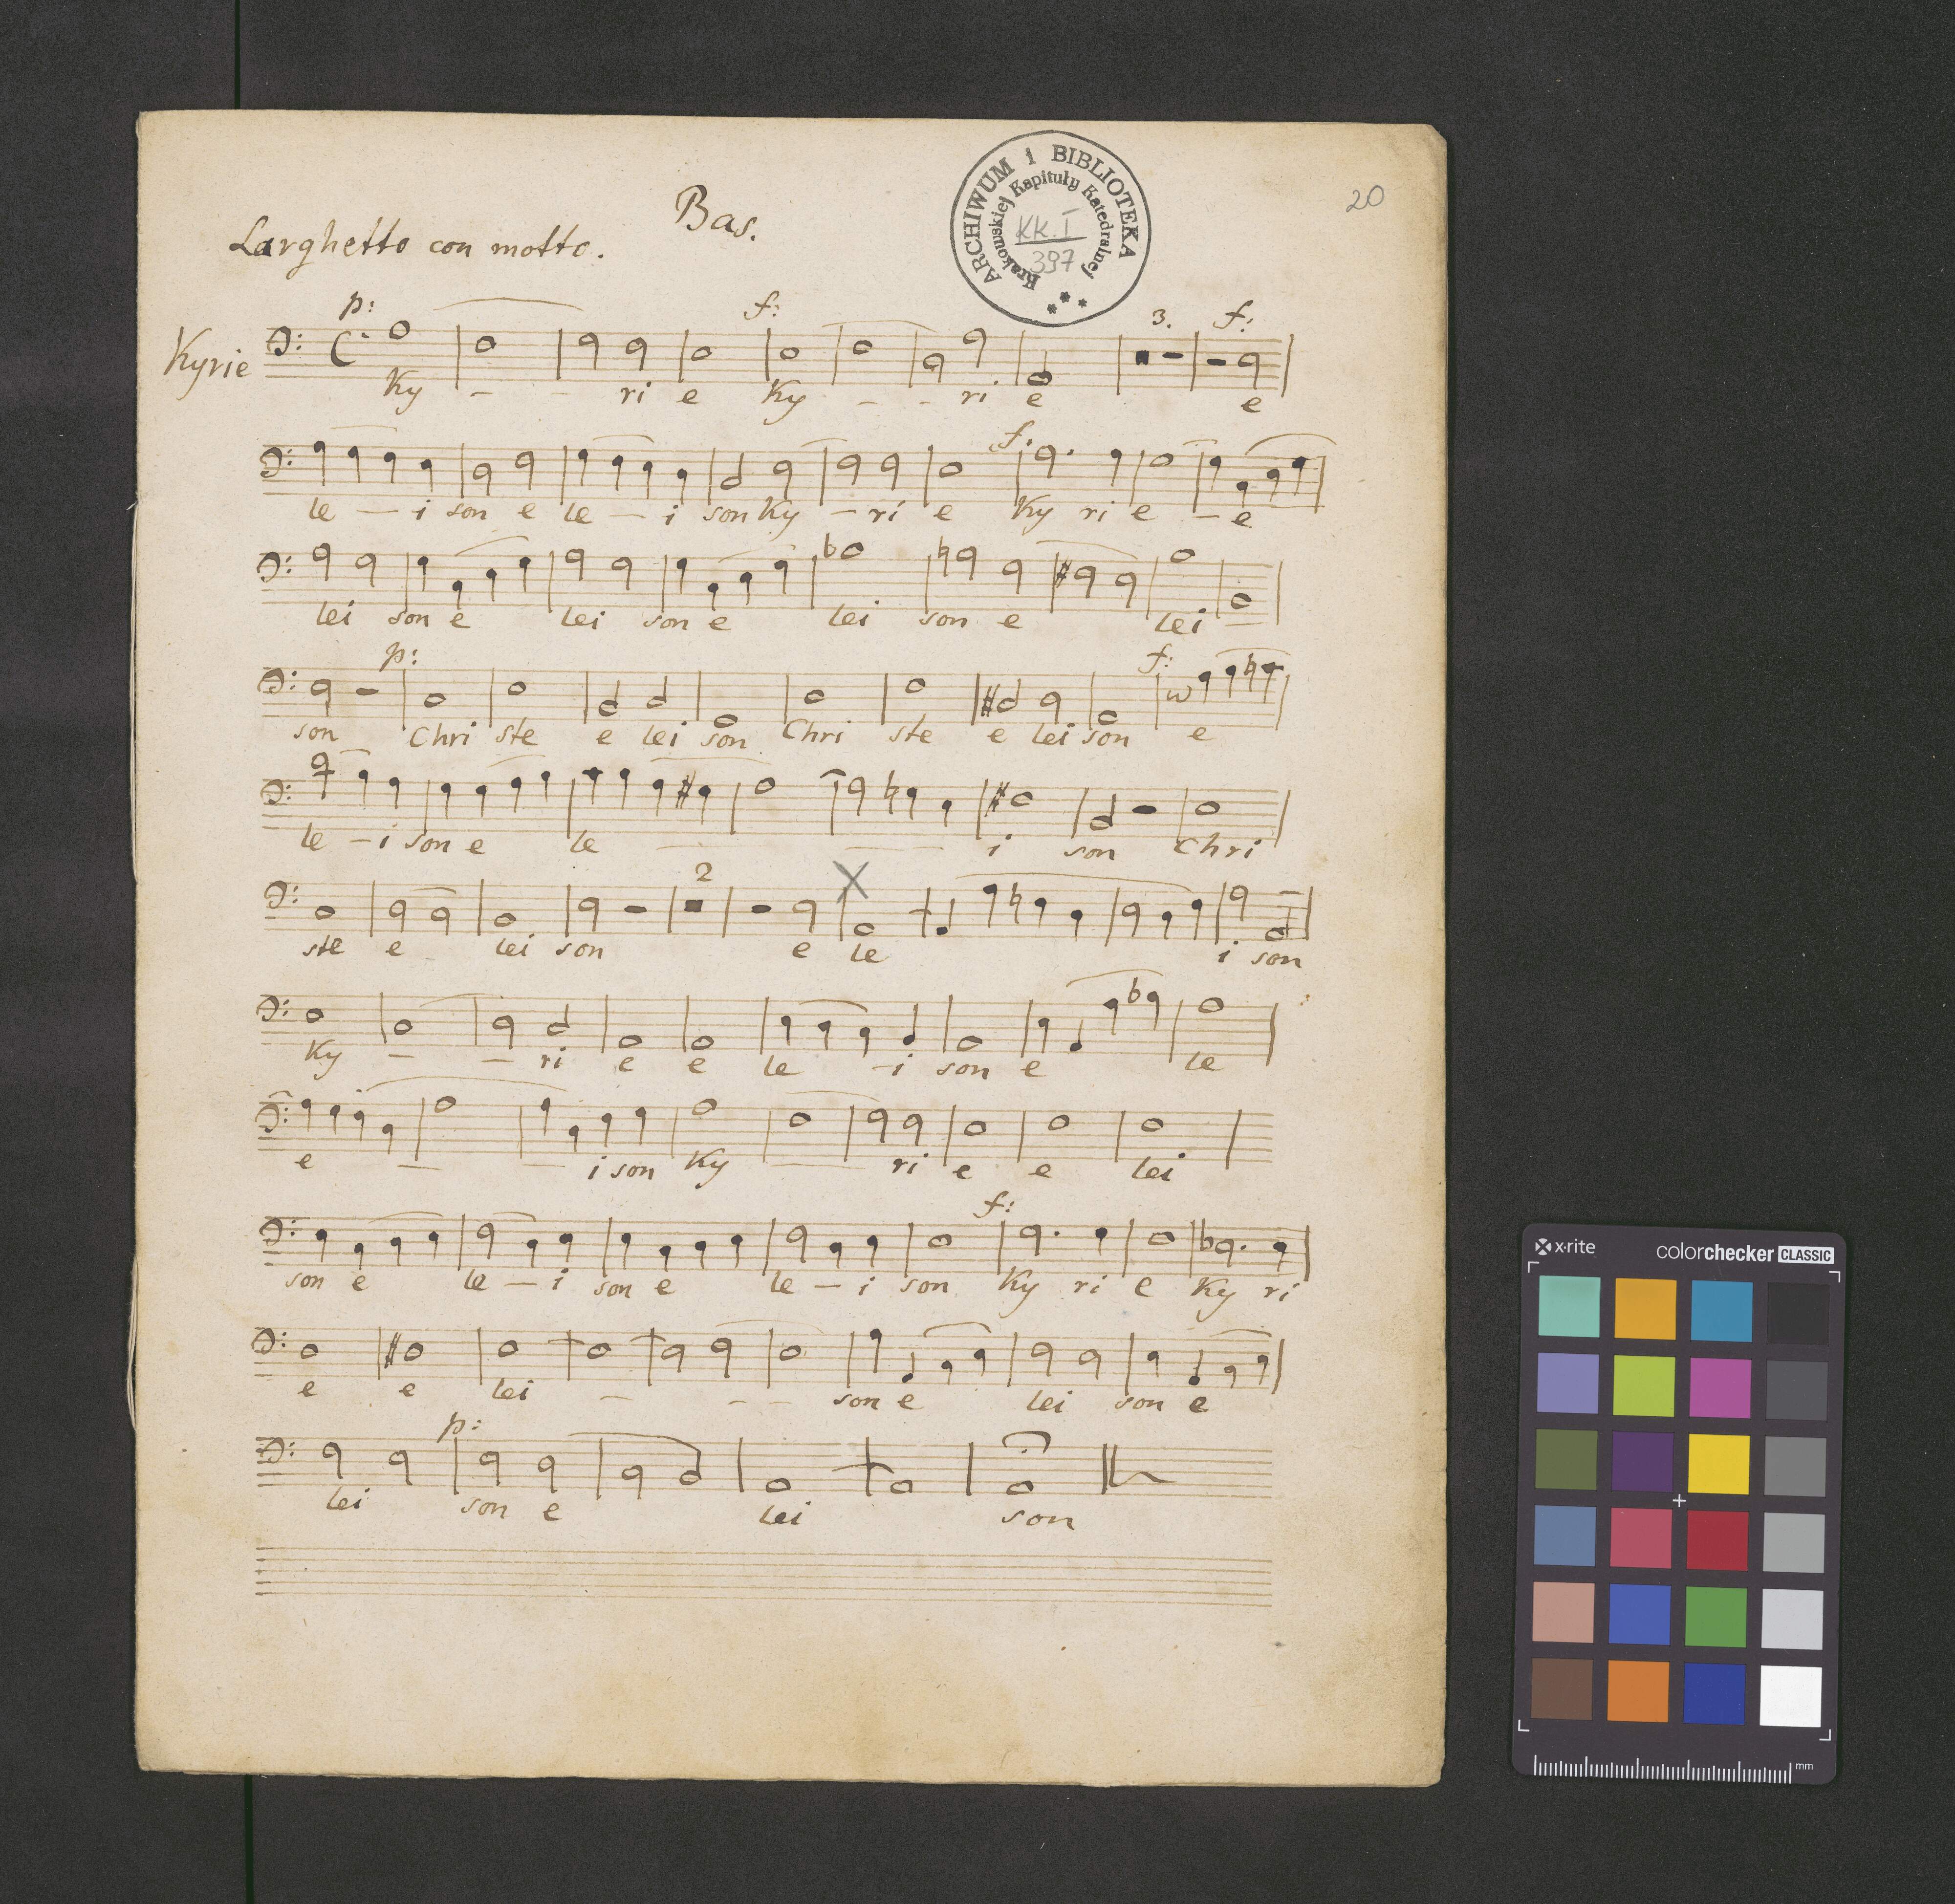 20
ARCHIWUM i BIBLIOTEKA
Krakowskiej Kapituły Katedralnej
KK. I
397
Bas.
Larghetto con motto.
p: f: 3. f:
Kyrie Ky - - ri e Ky - - ri e e
f:
le - i son e le - i son Ky - ri e Ky ri e - e
lei son e lei son e lei son e lei -
p: f:
son Chri ste e lei son Chri ste e lei son e
le - i son e le i son Chri
2
ste e lei son e le i son
Ky - - ri e e le - i son e le
e - - i son Ky - ri e e lei
f:
son e le - i son e le - i son Ky ri e Ky ri
e e lei - - - son e lei son e
p:
lei son e lei son
x-rite colorchecker CLASSIC
mm